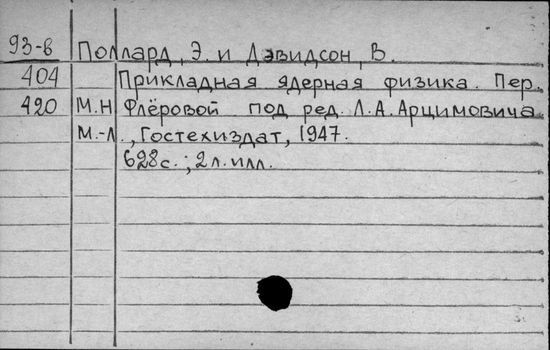 93-в Поллард, Э. и Дэвидсон, В.
404 Прикладная ядерная физика. Пер.
420 М.Н. Флёровой под ред. Л.А. Арцимовича.
М.-Л., Гостехиздат, 1947.
628 с.; 2 л. илл.